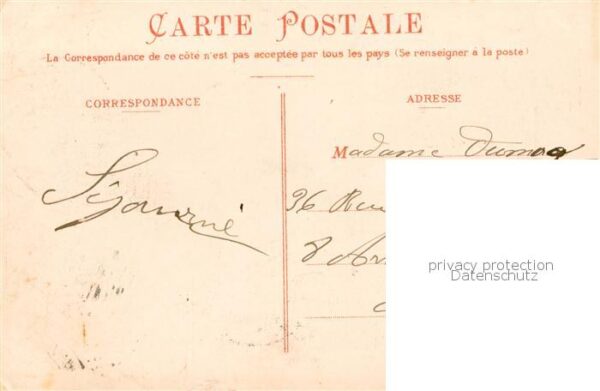 CARTE POSTALE
La Correspondance de ce côté n'est pas acceptée par tous les pays (Se renseigner à la poste)
CORRESPONDANCE
ADRESSE
Madame
96 Rue
8 Ar
privacy protection
Datenschutz